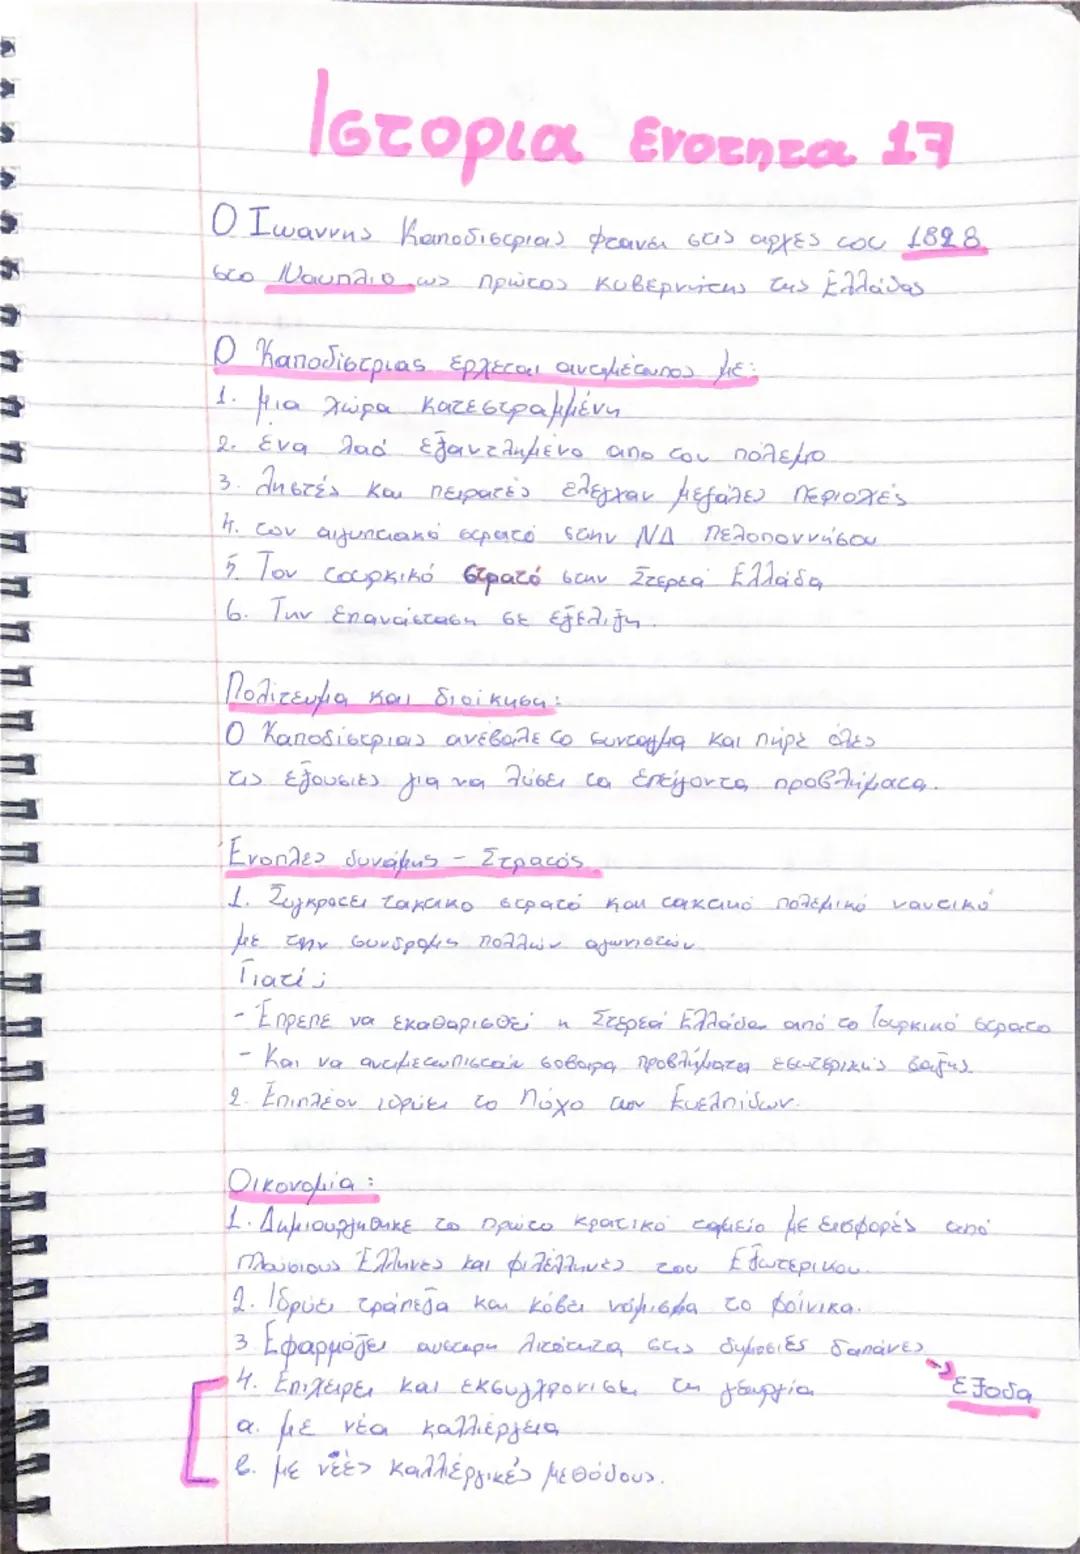 Ιστορια ενοτητα 17
Ο Ιωαννης Καποδιστριας φτανει στις αρχες του 1828
στο Ναυπλιο ως πρώτος κυβερνήτης της Ελλάδας
Ο Καποδίστριας ερχεται αντιμέτωπος με:
1. μια χώρα κατεστραμμένη
2. ένα λαό εξαντλημένο απο τον πόλεμο
3. ληστές και πειρατές έλεγχαν μεγάλες περιοχές
4. τον αιγυπτιακό στρατό στην ΝΔ Πελοποννήσου
5. Τον τουρκικό στρατό στην Στερεά Ελλάδα
6. Την Επανάσταση σε εξέλιξη.
Πολίτευμα και διοίκηση:
Ο Καποδίστριας ανέβαλε το συνταγμα και πήρε όλες
τις εξουσίες για να λύσει τα επείγοντα προβλήματα.
Ενοπλες δυνάμης - Στρατός
1. Συγκροτεί τακτικο στρατό και τακτικό πολεμικό ναυτικό
με την συνδρομή πολλών αγωνιστών
Γιατί;
- Έπρεπε να εκαθαρισθεί η Στερεά Ελλάδα από το Τουρκικό στρατο
- Και να αντιμετωπιστούν σοβαρα προβλήματα εσωτερικής ταξης
2. Επιπλέον ιδρύει το Λόχο των Ευελπίδων.
Οικονομία:
1. Δημιουργήθηκε το πρώτο κρατικό ταμείο με εισφορές από
πλούσιους Έλληνες και φιλέλληνες του Εξωτερικου.
2. Ιδρύει τράπεζα και κόβει νόμισμα το φοίνικα.
3. Εφαρμόζει αυστηρη λιτότητα στις δημοσιές δαπάνες
→ έξοδα
4. Επιχειρει και εκσυγχρονισει τη γεωργία
α. με νέα καλλιέργεια
β. με νέες καλλιέργικές μεθόδους.